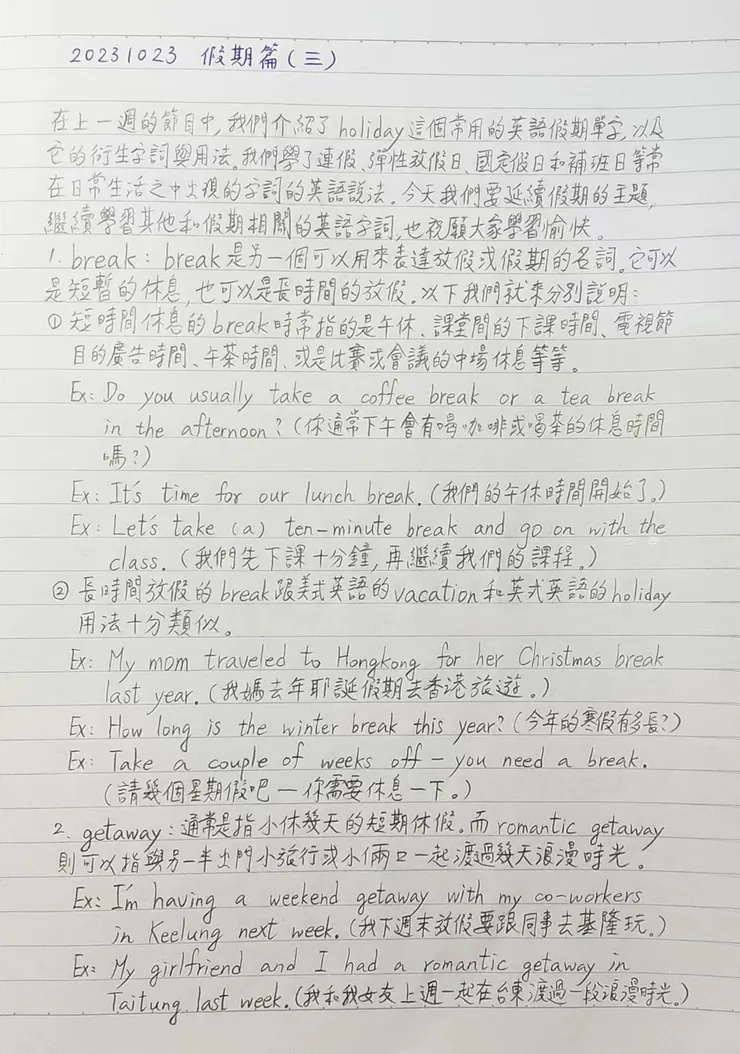 20231023 假期篇(三)
在上一週的節目中,我們介紹了holiday這個常用的英語假期單字,以及
它的衍生字詞與用法。我們學了連假、彈性放假日、國定假日和補班日等常
在日常生活之中出現的字詞的英語說法。今天我們要延續假期的主題,
繼續學習其他和假期相關的英語字詞,也祝願大家學習愉快。
1. break:break是另一個可以用來表達放假或假期的名詞。它可以
是短暫的休息,也可以是長時間的放假。以下我們就來分別說明:
① 短時間休息的break時常指的是午休、課堂間的下課時間、電視節
目的廣告時間、午茶時間、或是比賽或會議的中場休息等等。
Ex: Do you usually take a coffee break or a tea break
in the afternoon?(你通常下午會有喝咖啡或喝茶的休息時間
嗎?)
Ex: It's time for our lunch break.(我們的午休時間開始了。)
Ex: Let's take (a) ten-minute break and go on with the
class.(我們先下課十分鐘,再繼續我們的課程。)
② 長時間放假的break跟美式英語的vacation和英式英語的holiday
用法十分類似。
Ex: My mom traveled to Hongkong for her Christmas break
last year.(我媽去年耶誕假期去香港旅遊。)
Ex: How long is the winter break this year?(今年的寒假有多長?)
Ex: Take a couple of weeks off – you need a break.
(請幾個星期假吧—你需要休息一下。)
2. getaway:通常是指小休幾天的短期休假。而romantic getaway
則可以指與另一半出門小旅行或小倆口一起渡過幾天浪漫時光。
Ex: I'm having a weekend getaway with my co-workers
in Keelung next week.(我下週末放假要跟同事去基隆玩。)
Ex: My girlfriend and I had a romantic getaway in
Taitung last week.(我和我女友上週一起在台東渡過一段浪漫時光。)